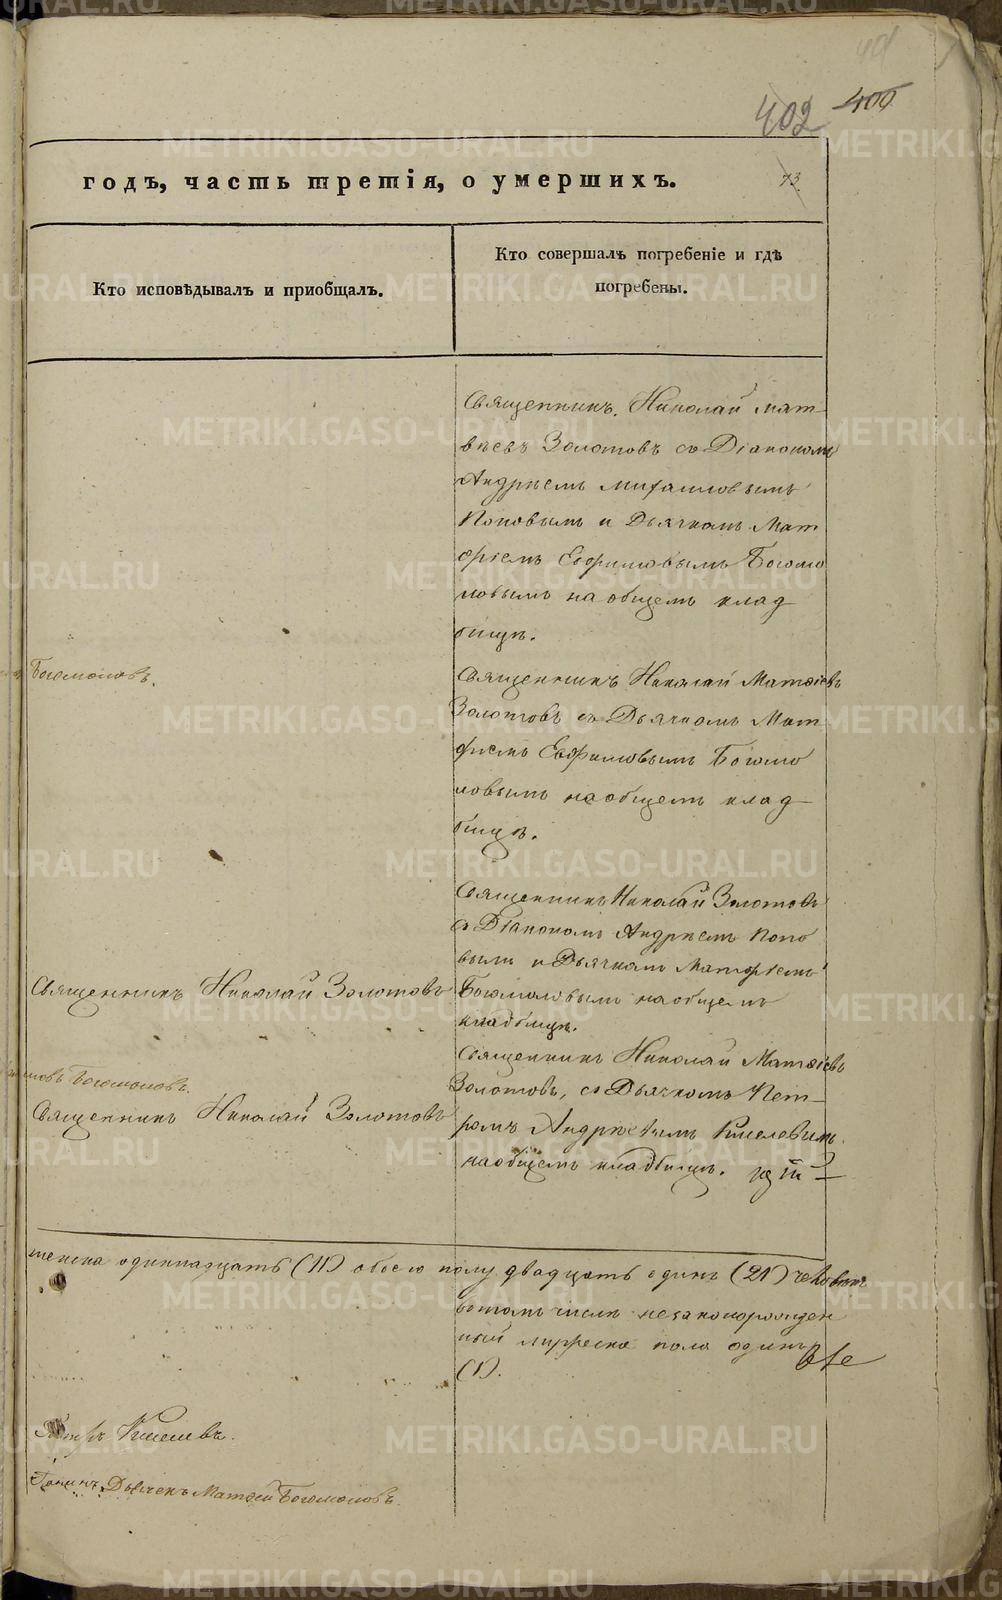 402 400
годъ, часть третія, о умершихъ.
73.
Кто исповѣдывалъ и приобщалъ.
Кто совершалъ погребеніе и гдѣ
погребены.
Священникъ. Николай Мат-
вѣевъ Золотовъ съ Діакономъ
Андрѣемъ Михаиловымъ
Поповымъ и Дьячкомъ Мат
ѳіемъ Евфимовымъ Богомо
ловымъ на общемъ клад
бищѣ.
Богомоловъ.
Священникъ Николай Матвіевъ
Золотовъ съ Дьячкомъ Мат-
фіемъ Евфимовымъ Богомо
ловымъ на общемъ клад-
бищѣ.
Священникъ Николай Золотовъ
съ Діакономъ Андрѣемъ Попо
вымъ и Дьячкомъ Матфіемъ
Богомоловымъ на общемъ
кладбищѣ.
Священникъ Николай Золотовъ
Священникъ Николай Матвіевъ
Золотовъ, съ Дьячкомъ Пет-
ромъ Андрѣевымъ Киселевымъ
на общемъ кладбищѣ.
Богомоловъ.
Священникъ Николай Золотовъ
женска одиннадцать (11) обоего полу двадцать одинъ (21) человѣкъ
въ томъ числѣ незаконорожден
ный мужеска пола одинъ
(1).
Петръ Киселевъ.
Дьячекъ Матѳей Богомоловъ.
METRIKI.GASO-URAL.RU